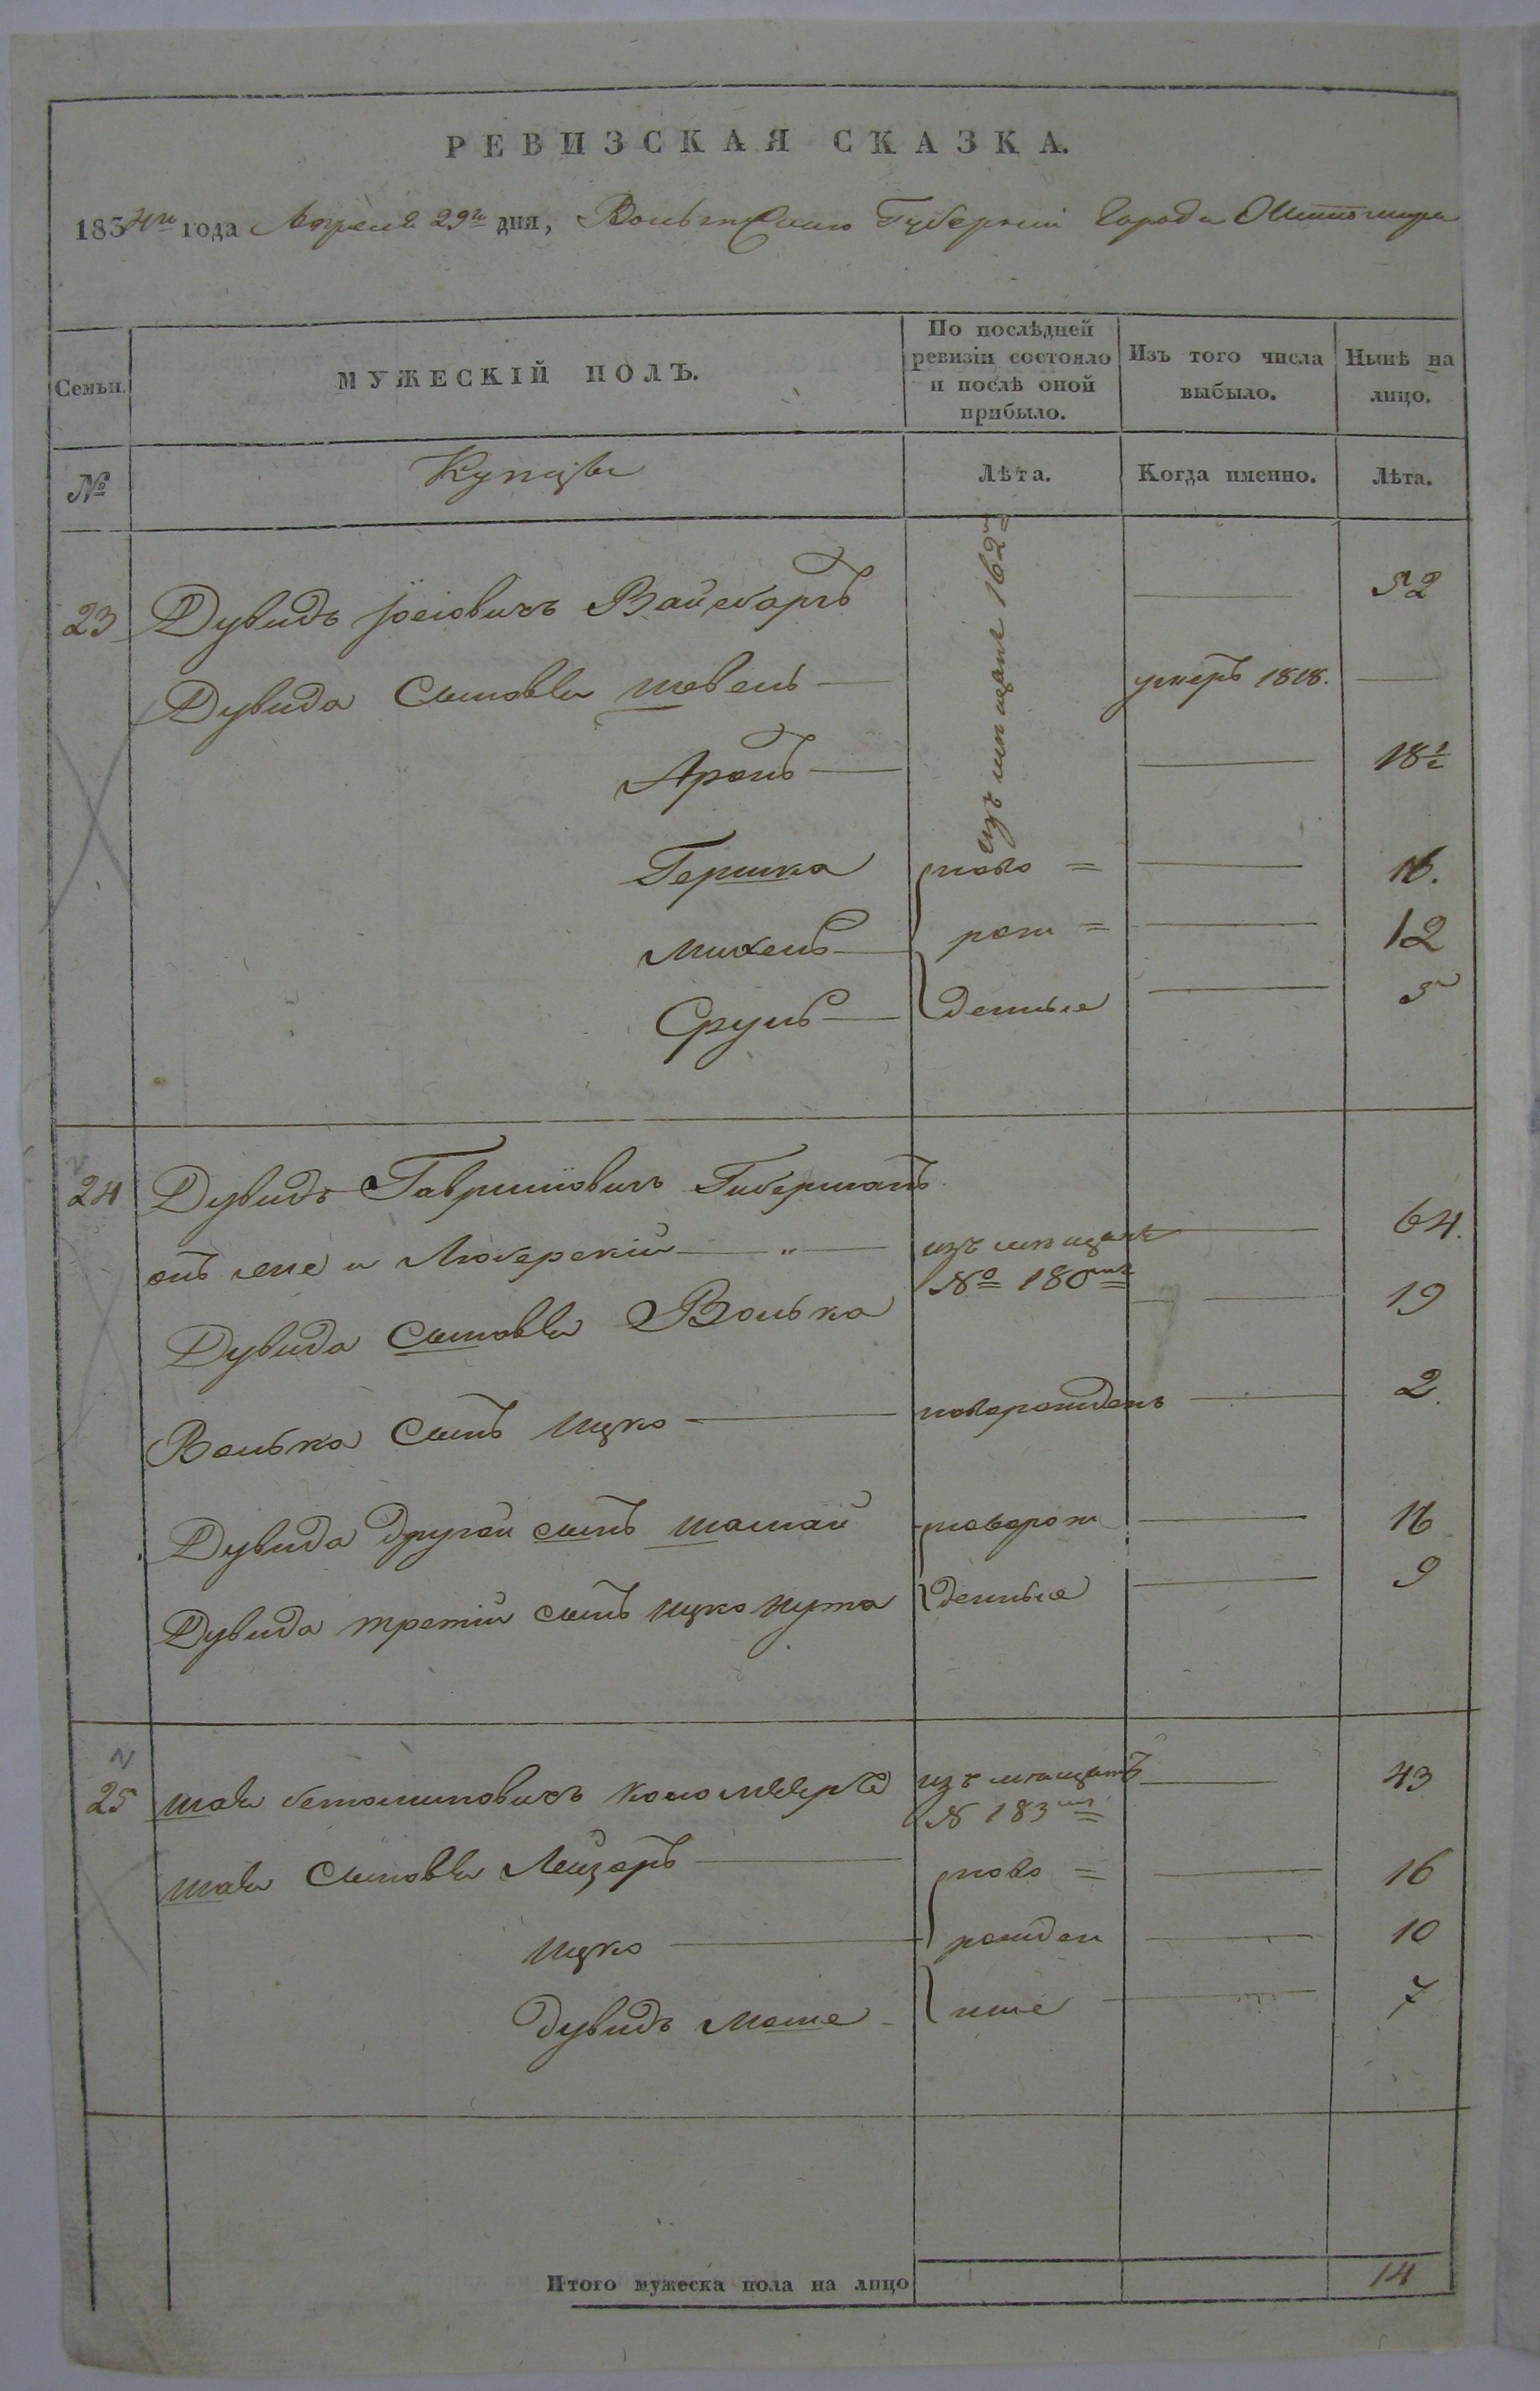 РЕВИЗСКАЯ СКАЗКА.
1834го года Апреля 29го дня, Волынской Губерніи Города Житомира
Семьи. МУЖЕСКІЙ ПОЛЪ. По послѣдней ревизіи состояло и послѣ оной прибыло. Изъ того числа выбыло. Нынѣ на лицо.
№ Купцы Лѣта. Когда именно. Лѣта.
изъ мещанъ 162
23 Дувидъ Іосіовичъ 52
Дувида Сыновья Шовель умеръ 1818.
Аронъ 18½
Гершко ново= 16.
Михель рож= 12
Сруль денные 5
24 Дувидъ Гавриловичъ Гиберманъ
онъ же и Любарскій " изъ мещанъ 64.
№ 180
Дувида Сыновья Волько 19
Волька Сынъ Ицко новорожденъ 2.
Дувида другой сынъ новорож 16
Дувида третій сынъ Ицко Нута денные 9
25 изъ мещанъ 43
N 183
Сыновья Лейзоръ ново= 16
Ицко рожден 10
Дувидъ Моше ные 7
Итого мужеска пола на лицо 14